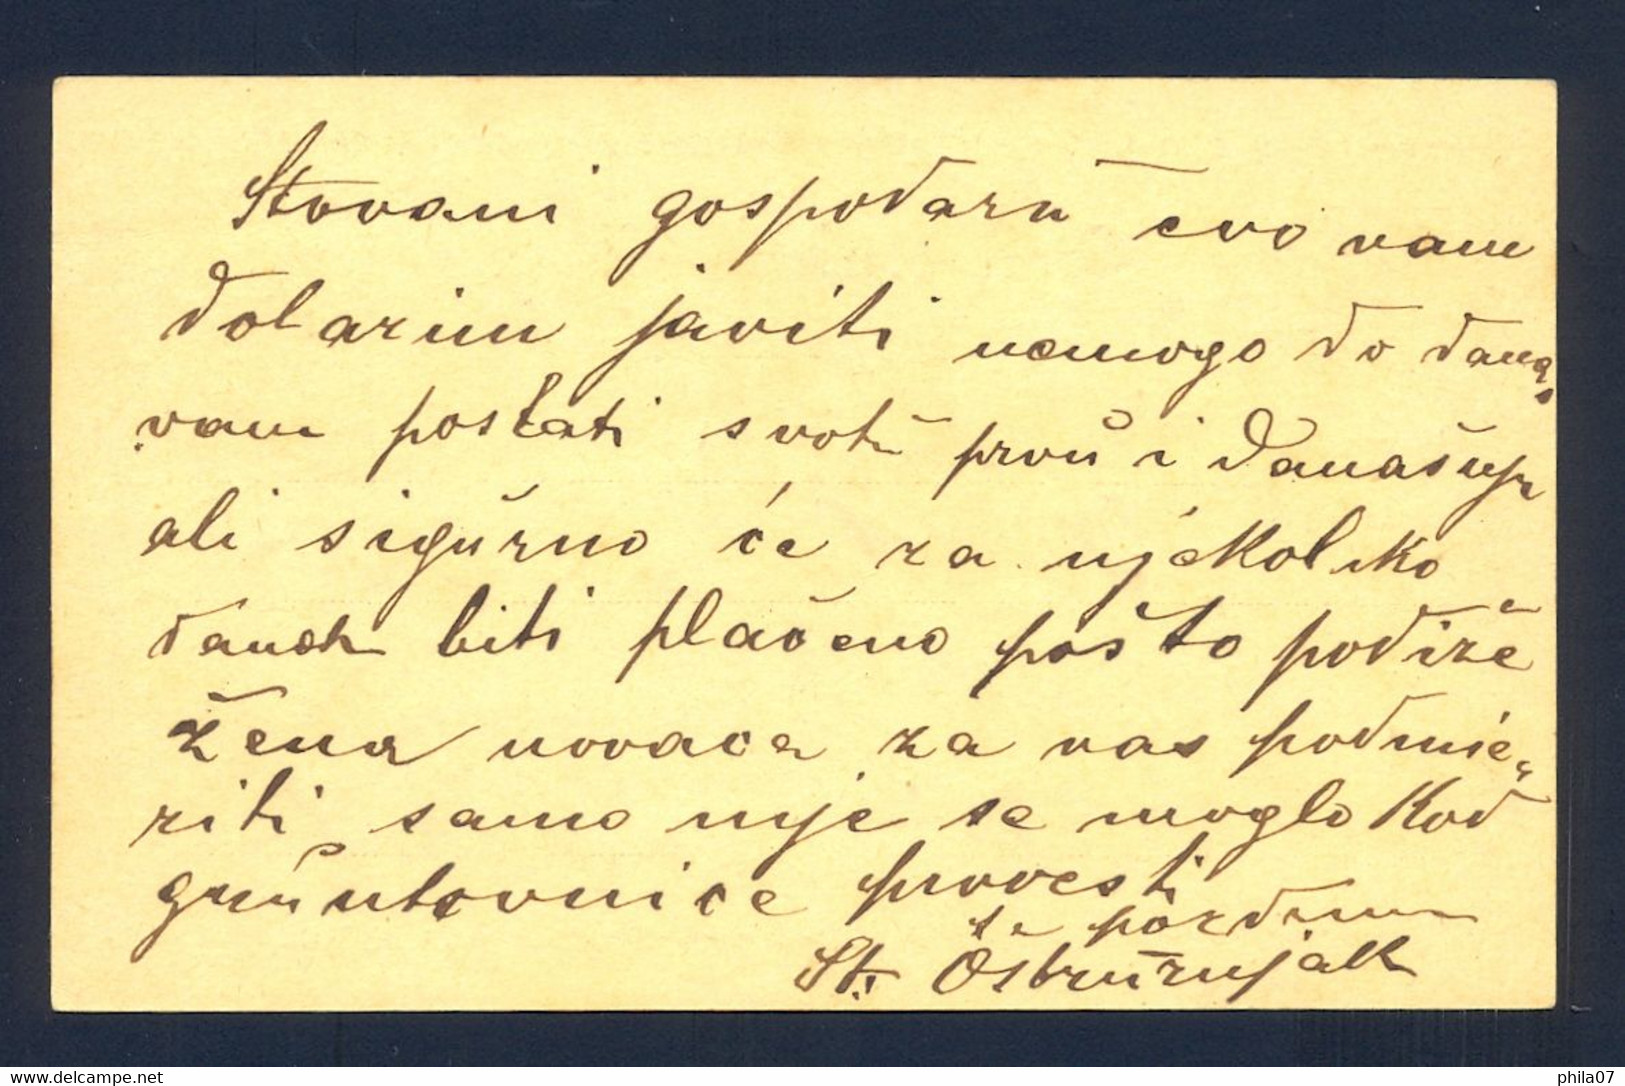 Štovani gospodaru evo vam
dolazim javiti nemogo do danas
vam poslati svotu prvu i današnju
ali sigurno će za njekoliko
danah biti plaćeno pošto podiže
žena novaca za vas podmie„
riti samo nije se moglo kod
gruntovnice provesti
te pozdrav
St. Oštrunjak
www.delcampe.net
phila07